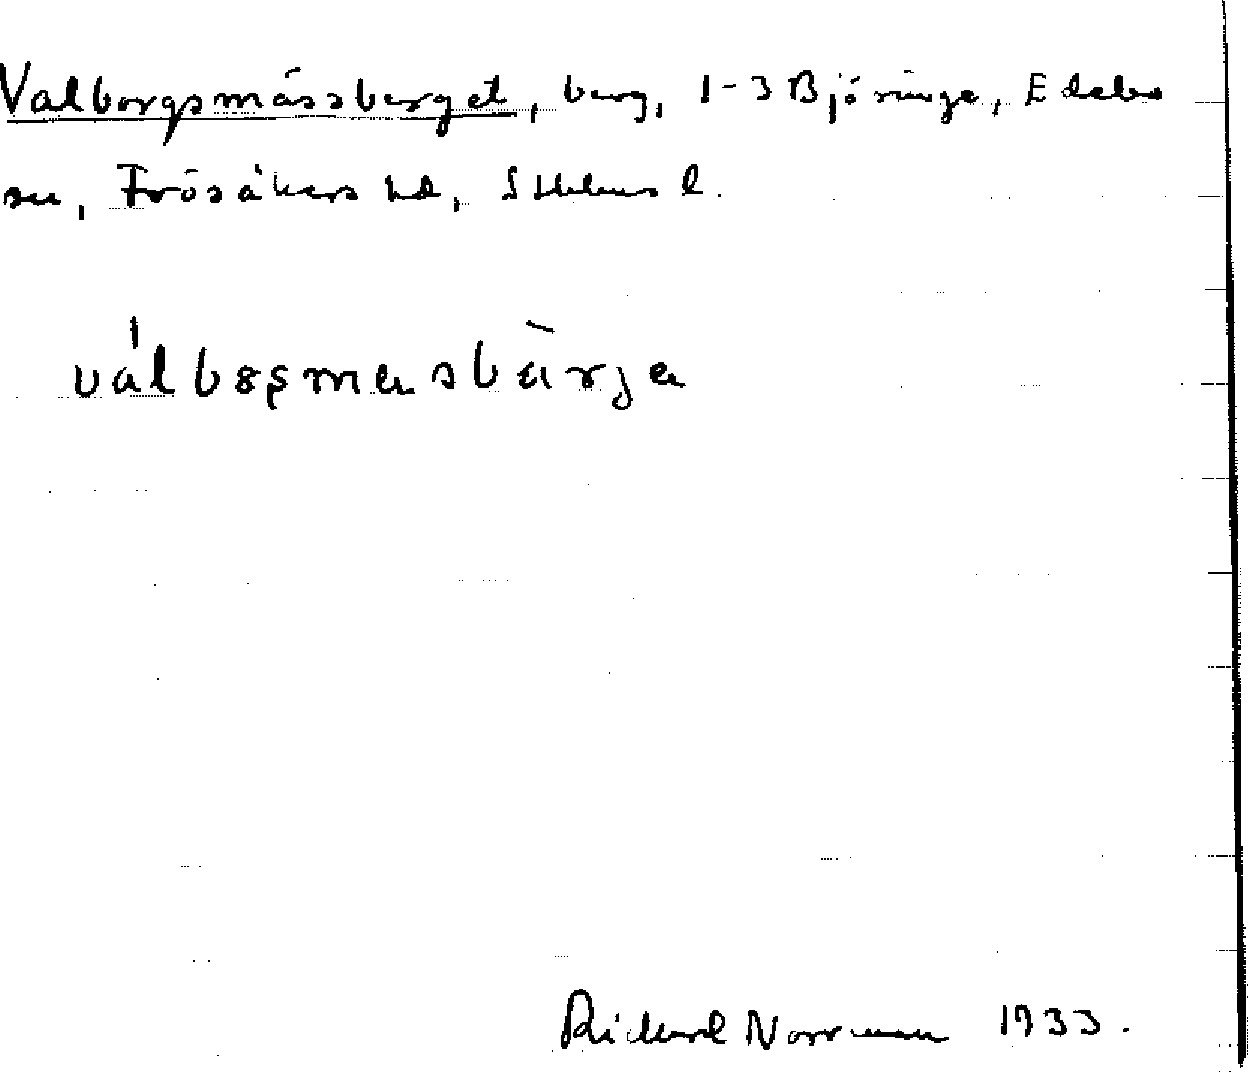 Valborgsmässberget, berg, 1-3 Björinge, Edebo
sn, Frösåkers hd, Sthlms l.
Rickard Norrman 1933.